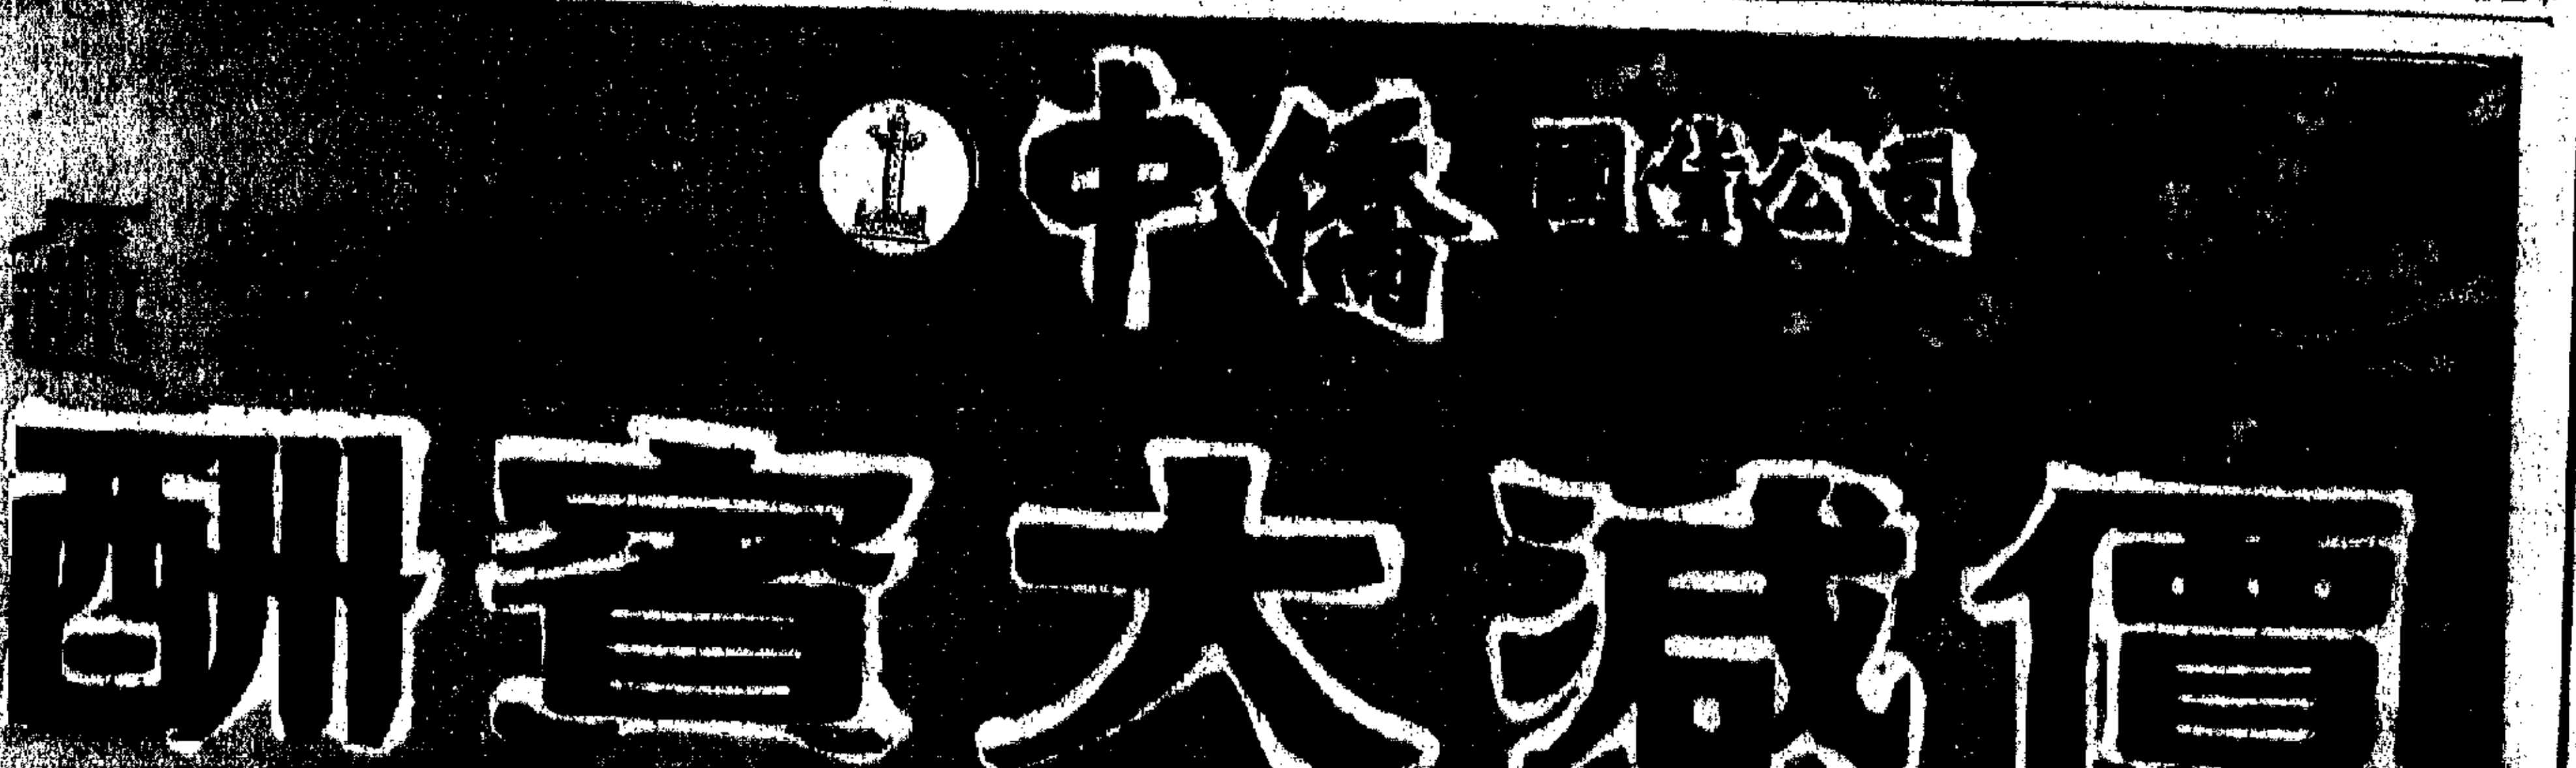 中僑國貨公司
酬賓大減價